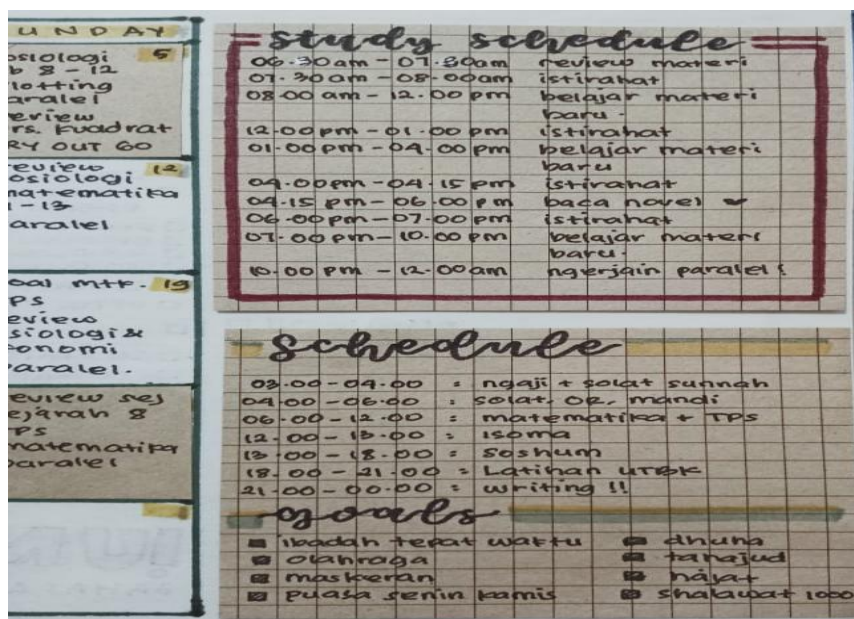 UNDAY
osiologi 5
b 8 - 12
lotting
aralel
eview
rs. kuadrat
RY OUT 60
eview 12
osiologi
matematika
1 - 13
aralel
oal mtk. 19
PS
eview
siologi &
onomi
aralel.
eview sej
ejarah 8
TPS
matematika
paralel
study schedule
06.30am - 07.30am review materi
07.30am - 08.00am istirahat
08.00 am - 12.00 pm belajar materi
baru.
12.00 pm - 01.00 pm istirahat
01.00 pm - 04.00 pm belajar materi
baru
04.00pm - 04.15 pm istirahat
04.15 pm - 06.00 pm baca novel
06.00pm - 07.00 pm istirahat
07.00 pm - 10.00 pm belajar materi
baru.
10.00 pm - 12.00 am ngerjain paralel!
Schedule
03.00 - 04.00 = ngaji + solat sunnah
04.00 - 06.00 = solat, OR, mandi
06.00 - 12.00 = matematika + TPS
12.00 - 13.00 = isoma
13.00 - 18.00 = Soshum
18.00 - 21.00 = Latihan UTBK
21.00 - 00.00 = writing !!
goals
ibadah tepat waktu
olahraga
maskeran
puasa senin kamis
dhuha
tahajud
hajat
shalawat 1000